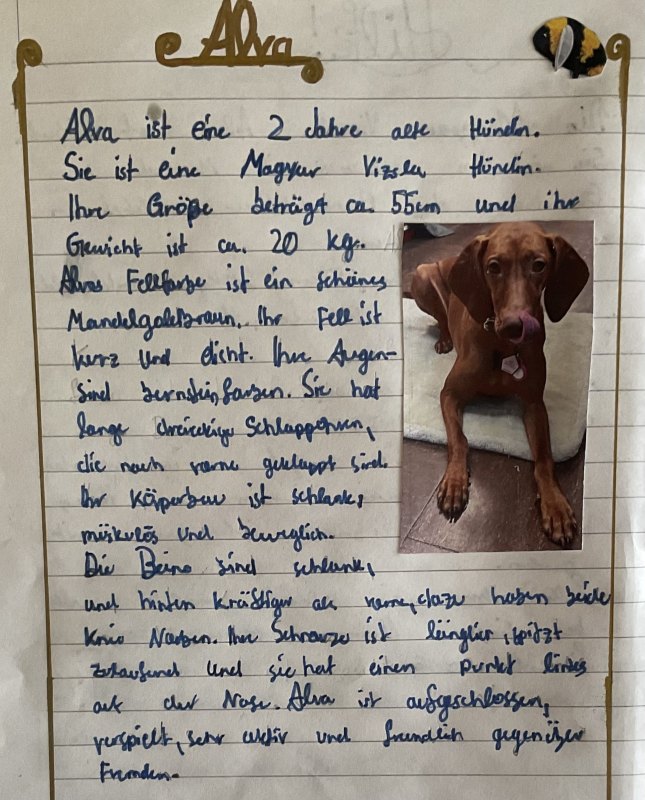 Alva
Alva ist eine 2 Jahre alte Hündin.
Sie ist eine Magyar Vizsla Hündin.
Ihre Größe beträgt ca. 55cm und ihr
Gewicht ist ca. 20 kg.
Alvas Fellfarbe ist ein schönes
Mandelgoldbraun. Ihr Fell ist
kurz und dicht. Ihre Augen-
sind bernsteinfarben. Sie hat
lange dreieckige Schlappohren,
die nach vorne geklappt sind.
Ihr Körperbau ist schlank,
müskulös und beweglich.
Die Beine sind schlank,
und hinten kräftiger als vorne, dazu haben beide
Knie Narben. Ihre Schnauze ist länglich, spitzt
zulaufend und sie hat einen Punkt links
auf der Nase. Alva ist aufgeschlossen,
verspielt, sehr aktiv und freundlich gegenüber
Fremden.